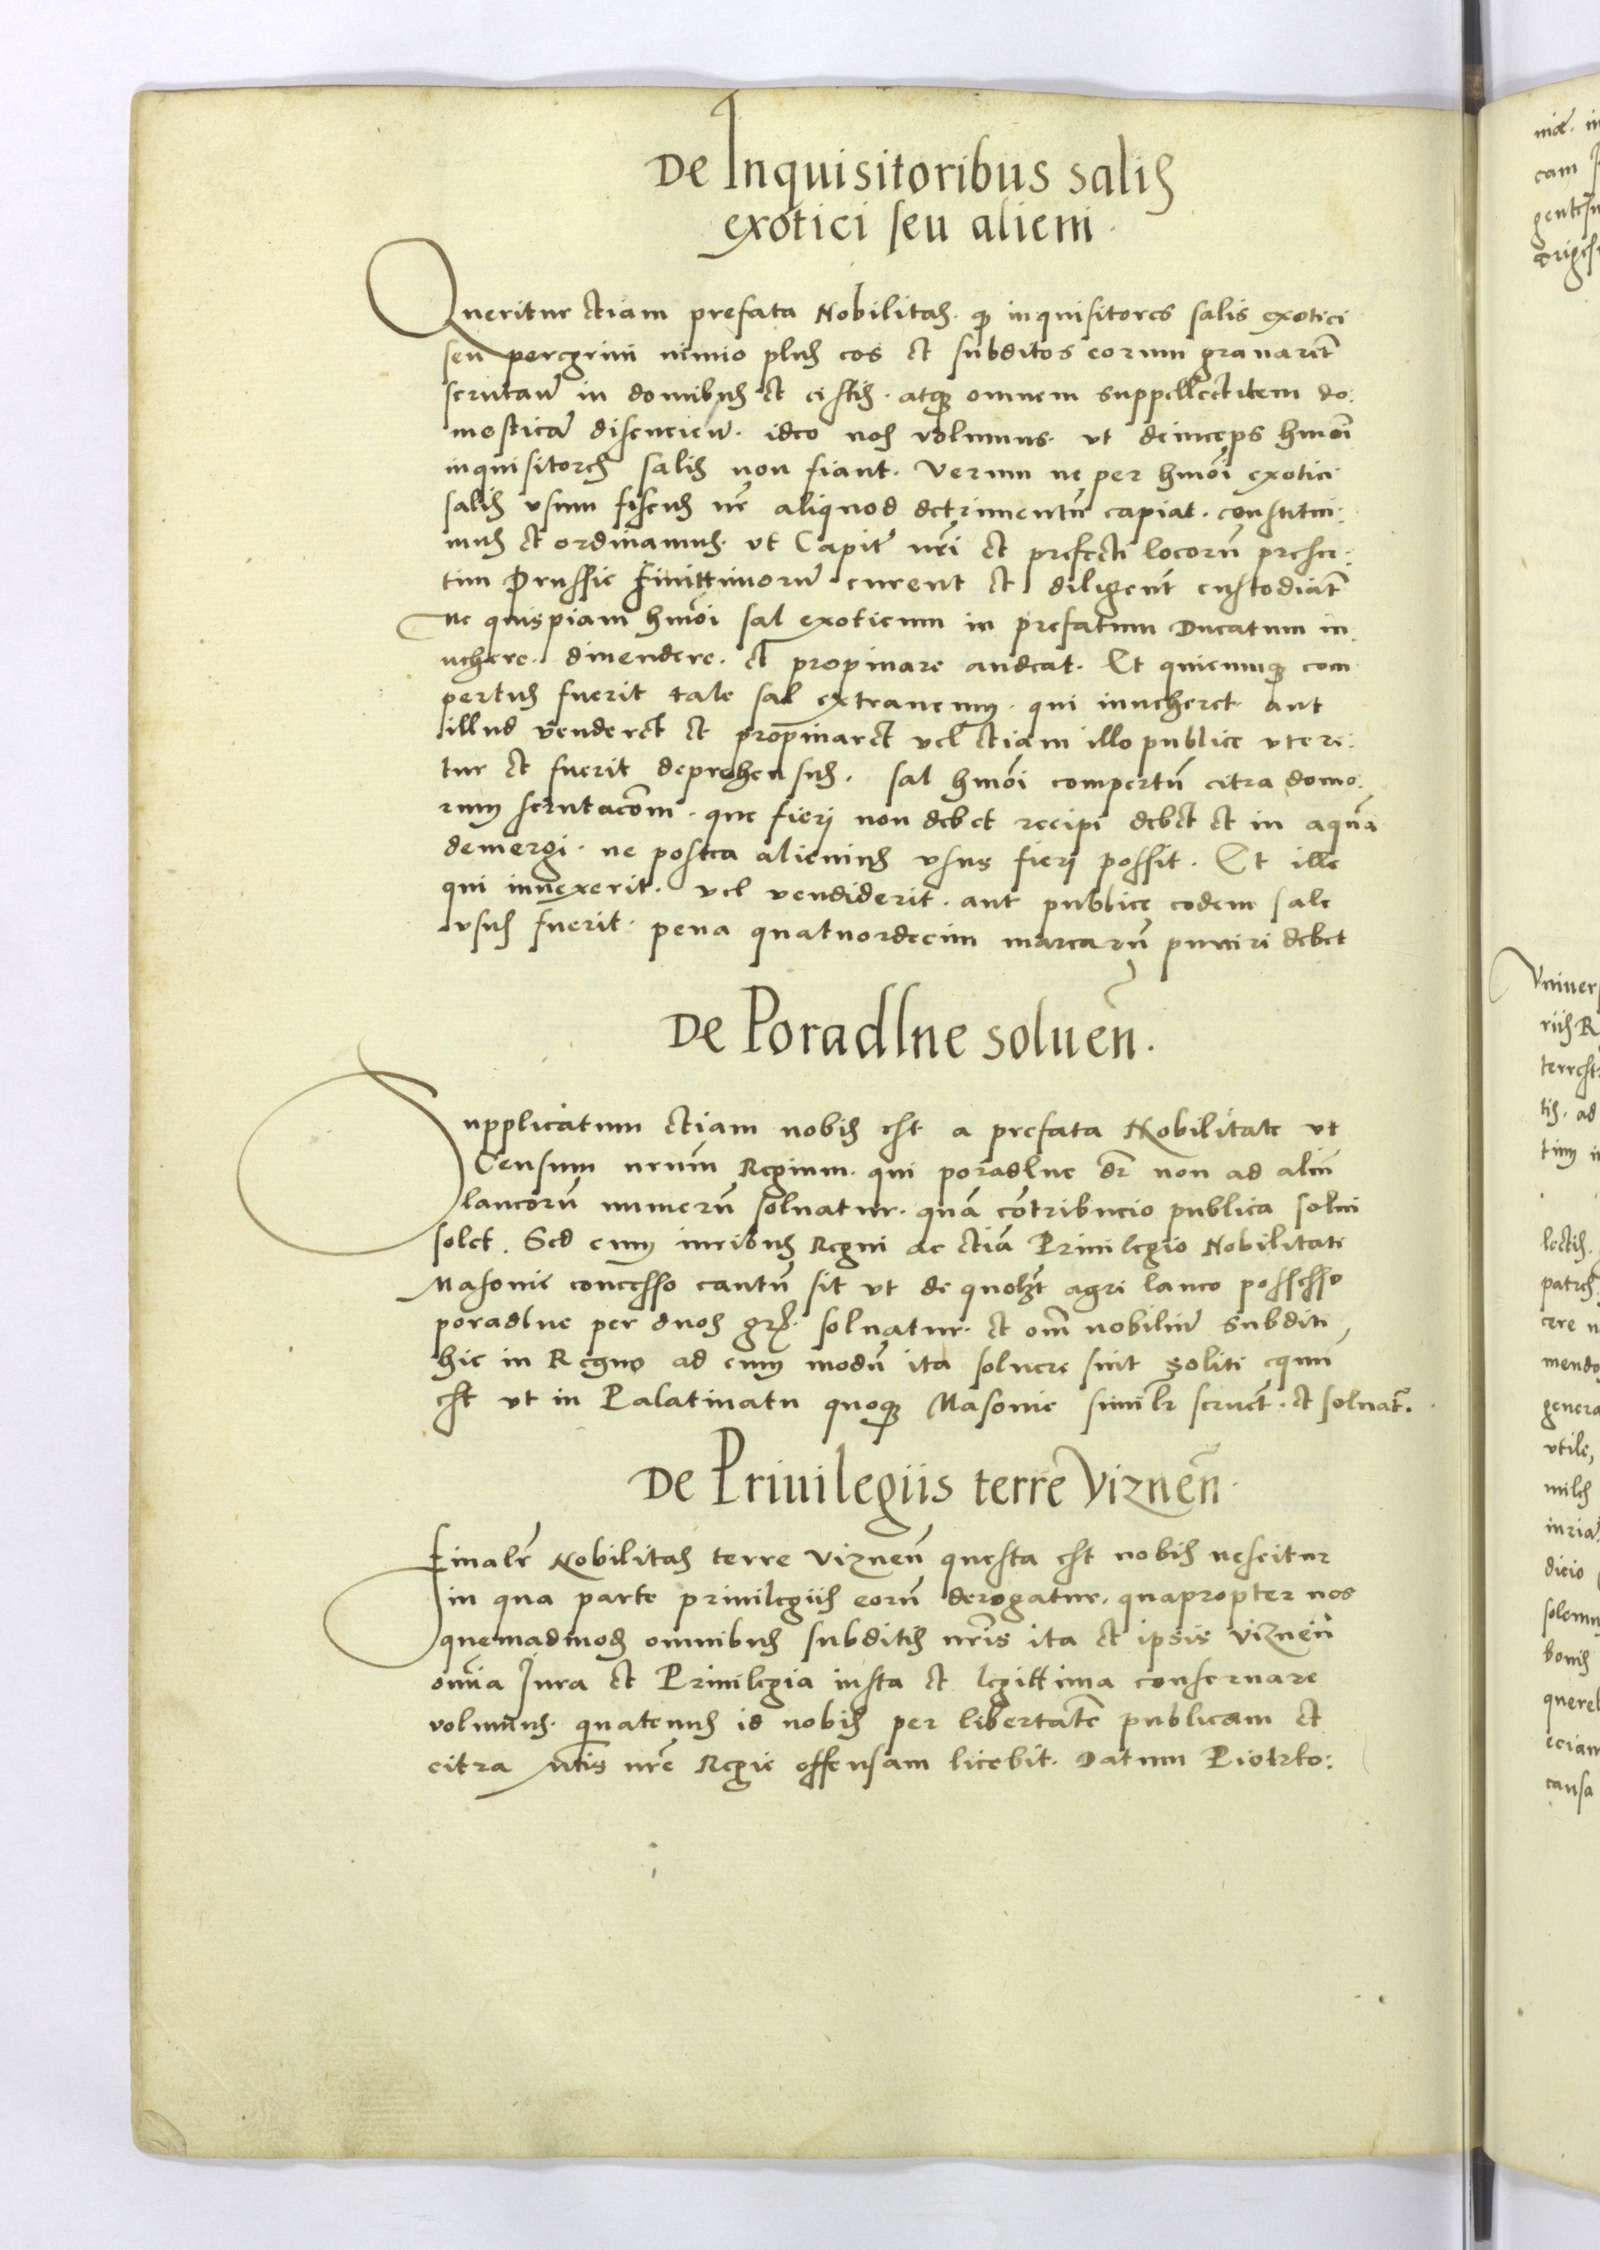 De Inquisitoribus salis
exotici seu alieni.
Queritur etiam prefata Nobilitas. qȝ inquisitores salis exotici
seu peregrini nimio plus eos et subditos eorum grauarēt
scrutañ in domibus et cistis. atqȝ omnem suppellectilem do:
mesticā discucieñ. ideo nos volumus. vt deinceps hmōi
inquisitores salis non fiant. Verum ne per hmōi exotici
salis vsum fiscus nr̄ aliquod detrimentū capiat. constitui:
mus et ordinamus. vt Capit̄ nr̄i et prefecti locorū preser:
tim Prussie finittimorū curent et diligent̄ custodiāt
ne quispiam hmōi sal exoticum in prefatum Ducatum in
uehere. diuendere. et propinare audeat. Et quicumqȝ com
pertus fuerit tale sal extraneum. qui inueheret. aut
illud venderet et propinaret vel etiam illo publice vtere:
tur et fuerit deprehensus. sal hmōi compertū citra domo:
rum scrutacōem. que fieri non debet recipi debet et in aquā
demergi. ne postea alienius vsus fieri possit. Et ille
qui inuexerit. vel vendiderit. aut publice eodem sale
vsus fuerit. pena quatuordecim marcarū puniri debet
De Poradlne soluen̄.
Supplicatum etiam nobis est a prefata Nobilitate vt
Censum nr̄um Regium. qui poradlne dr̄ non ad aliū
laneorū numerū soluatur. quā cōtribucio publica solui
solet. Sed cum iuribus Regni ac etiā Priuilegio Nobilitati
Masouie concesso cautū sit vt de quolꝫt agri laneo possesso
poradlne per duos gr̄. soluatur. et om̄ nobiliū subditi
hic in Regno ad eum modū ita soluere sint soliti equū
est vt in Palatinatu quoqȝ Masouie simil̄r seruet̄. et soluat̄.
De Priuilegiis terre Viznen̄.
Finalr̄ Nobilitas terre Viznen̄ questa est nobis nescitur
in qua parte priuilegiis eorū derogatur. quapropter nos
quemadmod̄ omnibus subditis nr̄is ita et ipsis Viznen̄
om̄ia Iura et Priuilegia iusta et legittima conseruare
volumus. quatenus id nobis per libertatē publicam et
citra Mt̄is nr̄e Regie offensam licebit. Datum Piotrko: